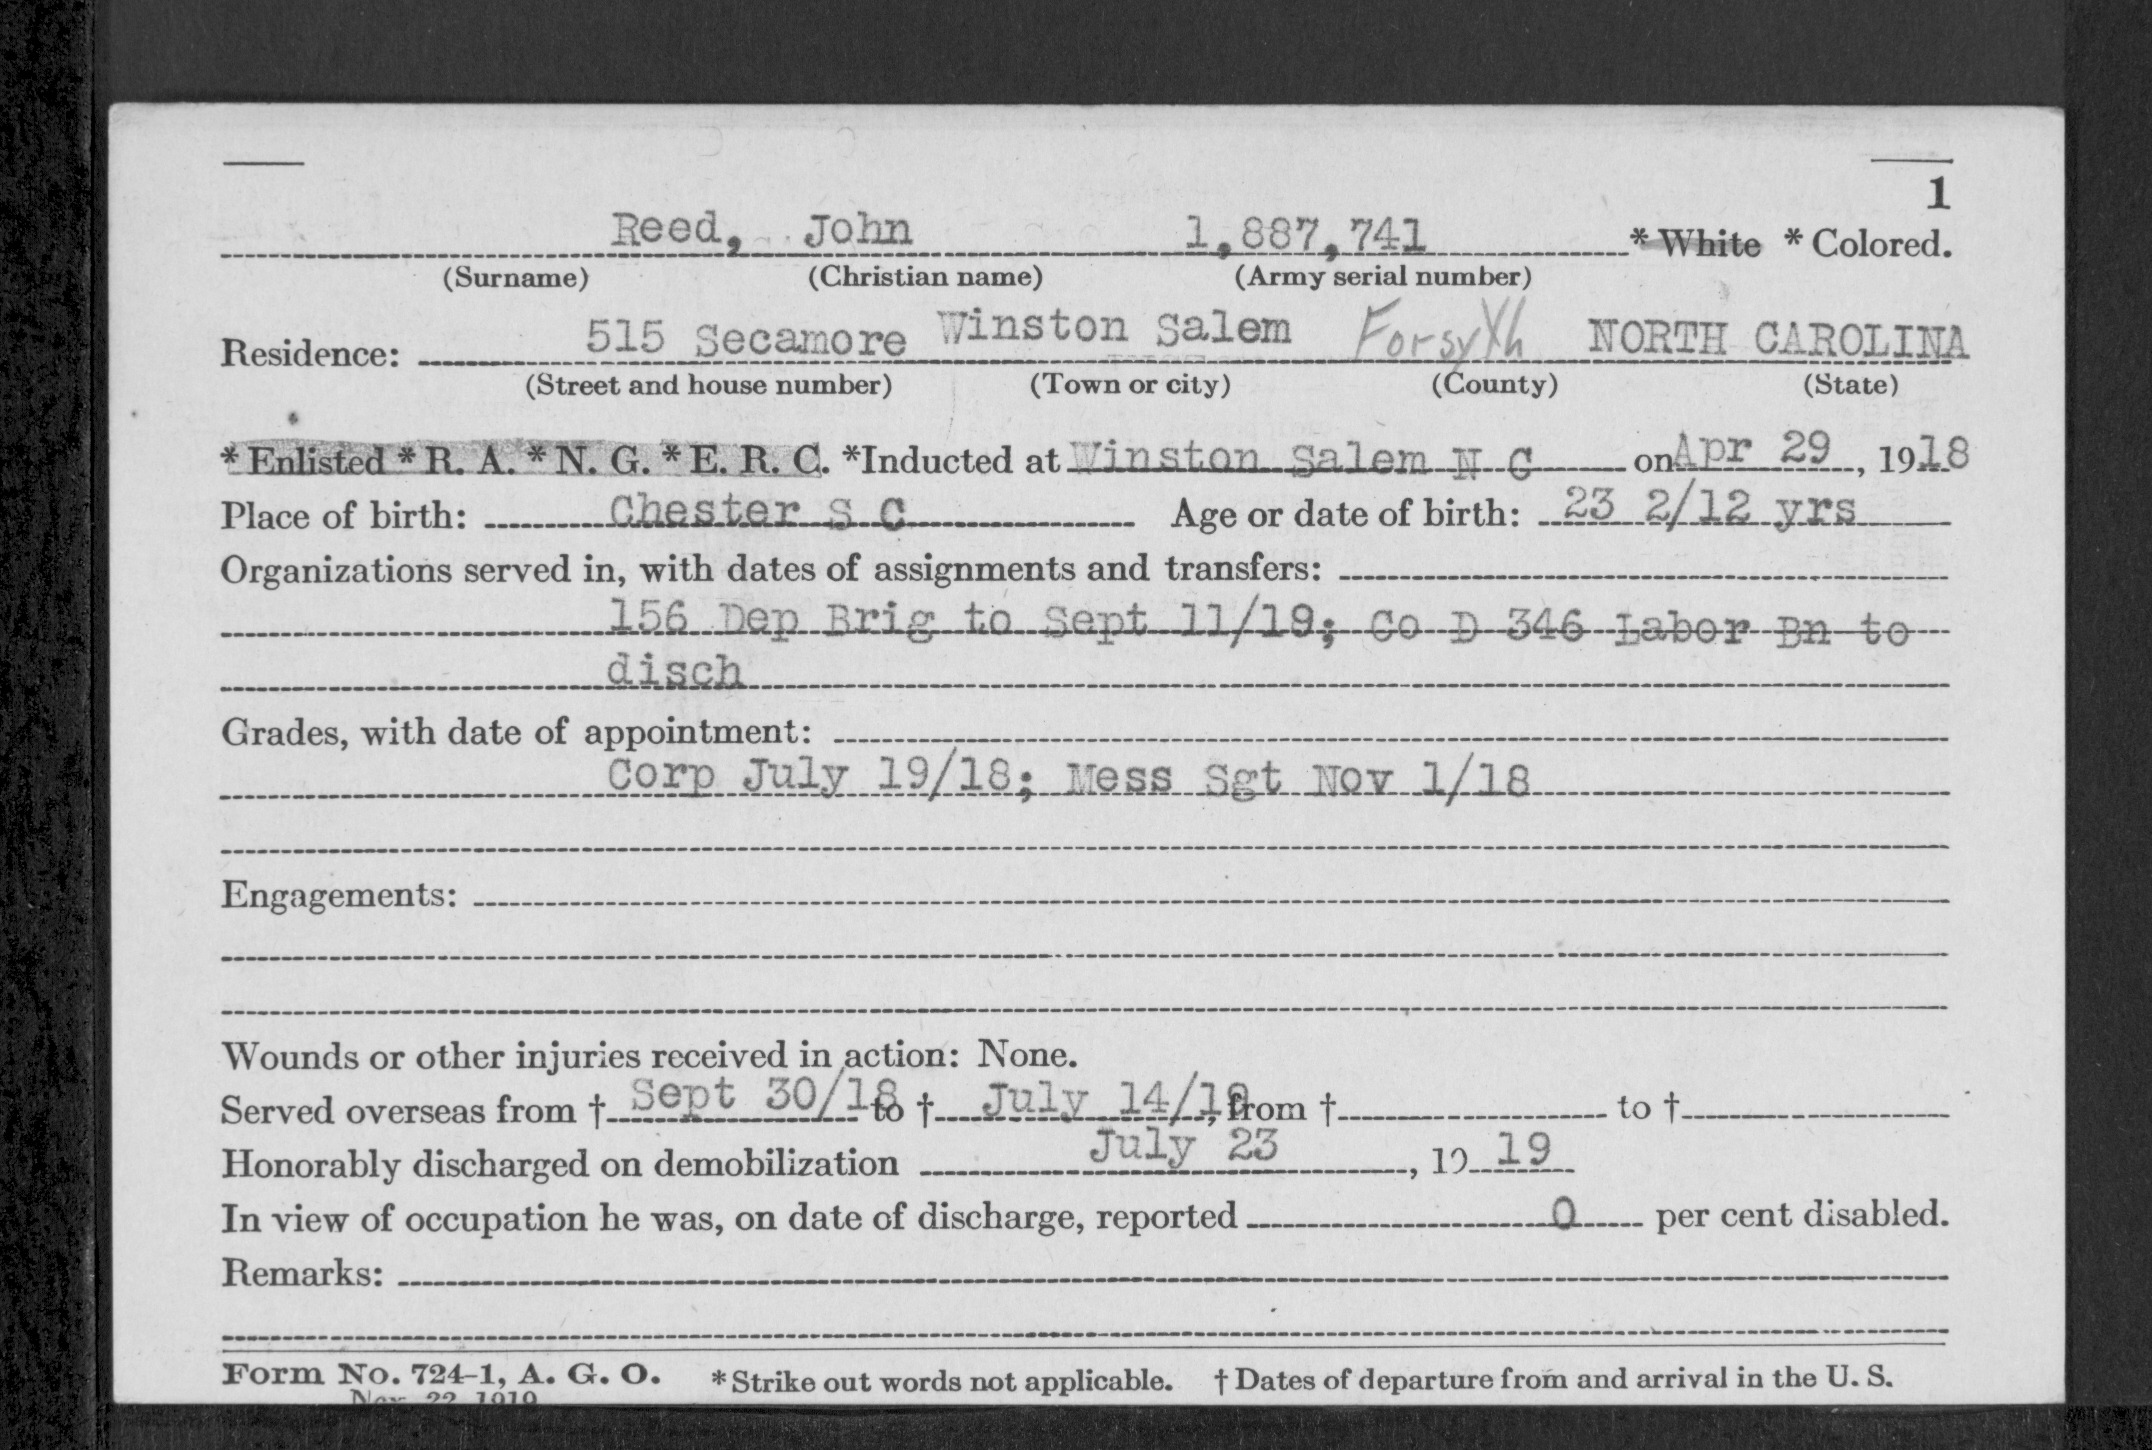 1
Reed, John 1,887,741 * White * Colored.
(Surname) (Christian name) (Army serial number)
Residence: 515 Secamore Winston Salem Forsyth NORTH CAROLINA
(Street and house number) (Town or city) (County) (State)
* Enlisted * R. A. * N. G. * E. R. C. *Inducted at Winston Salem N C on Apr 29, 1918
Place of birth: Chester S C Age or date of birth: 23 2/12 yrs
Organizations served in, with dates of assignments and transfers:
156 Dep Brig to Sept 11/19; Co D 346 Labor Bn to
disch
Grades, with date of appointment:
Corp July 19/18; Mess Sgt Nov 1/18
Engagements:
Wounds or other injuries received in action: None.
Served overseas from † Sept 30/18 to † July 14/19, from † to †
Honorably discharged on demobilization July 23, 19 19
In view of occupation he was, on date of discharge, reported 0 per cent disabled.
Remarks:
Form No. 724-1, A. G. O. * Strike out words not applicable. † Dates of departure from and arrival in the U. S.
Nov. 22, 1919